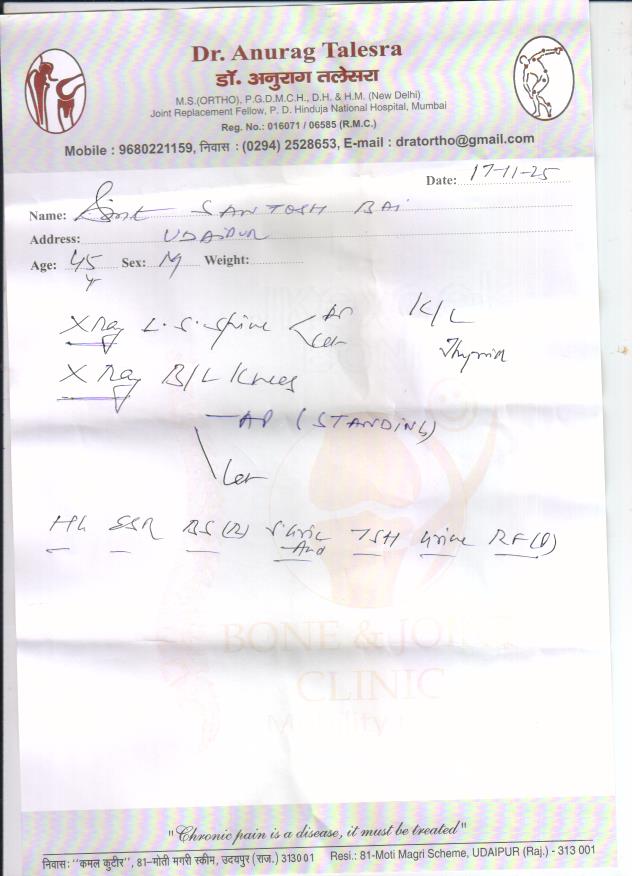 Dr. Anurag Talesra
डॉ. अनुराग तलेसरा
M.S.(ORTHO), P.G.D.M.C.H., D.H. & H.M. (New Delhi)
Joint Replacement Fellow, P. D. Hinduja National Hospital, Mumbai
Reg. No.: 016071 / 06585 (R.M.C.)
Mobile : 9680221159, निवास : (0294) 2528653, E-mail : dratortho@gmail.com
Date: 17-11-25
Name: Smt SANTOSH BAI
Address: UDAIPUR
Age: 45 y Sex: M Weight:
X Ray L.S. Spine AP Lat
K/L Thyroid
X Ray B/L Knees
AP (STANDING)
Lat
Hb ESR BS(R) S. Uric Acid TSH Urine RF(Q)
BONE & JOINT
CLINIC
Mobility
"Chronic pain is a disease, it must be treated"
निवास: "कमल कुटीर", 81-मोती मगरी स्कीम, उदयपुर (राज.) 313001 Resi.: 81-Moti Magri Scheme, UDAIPUR (Raj.) - 313 001